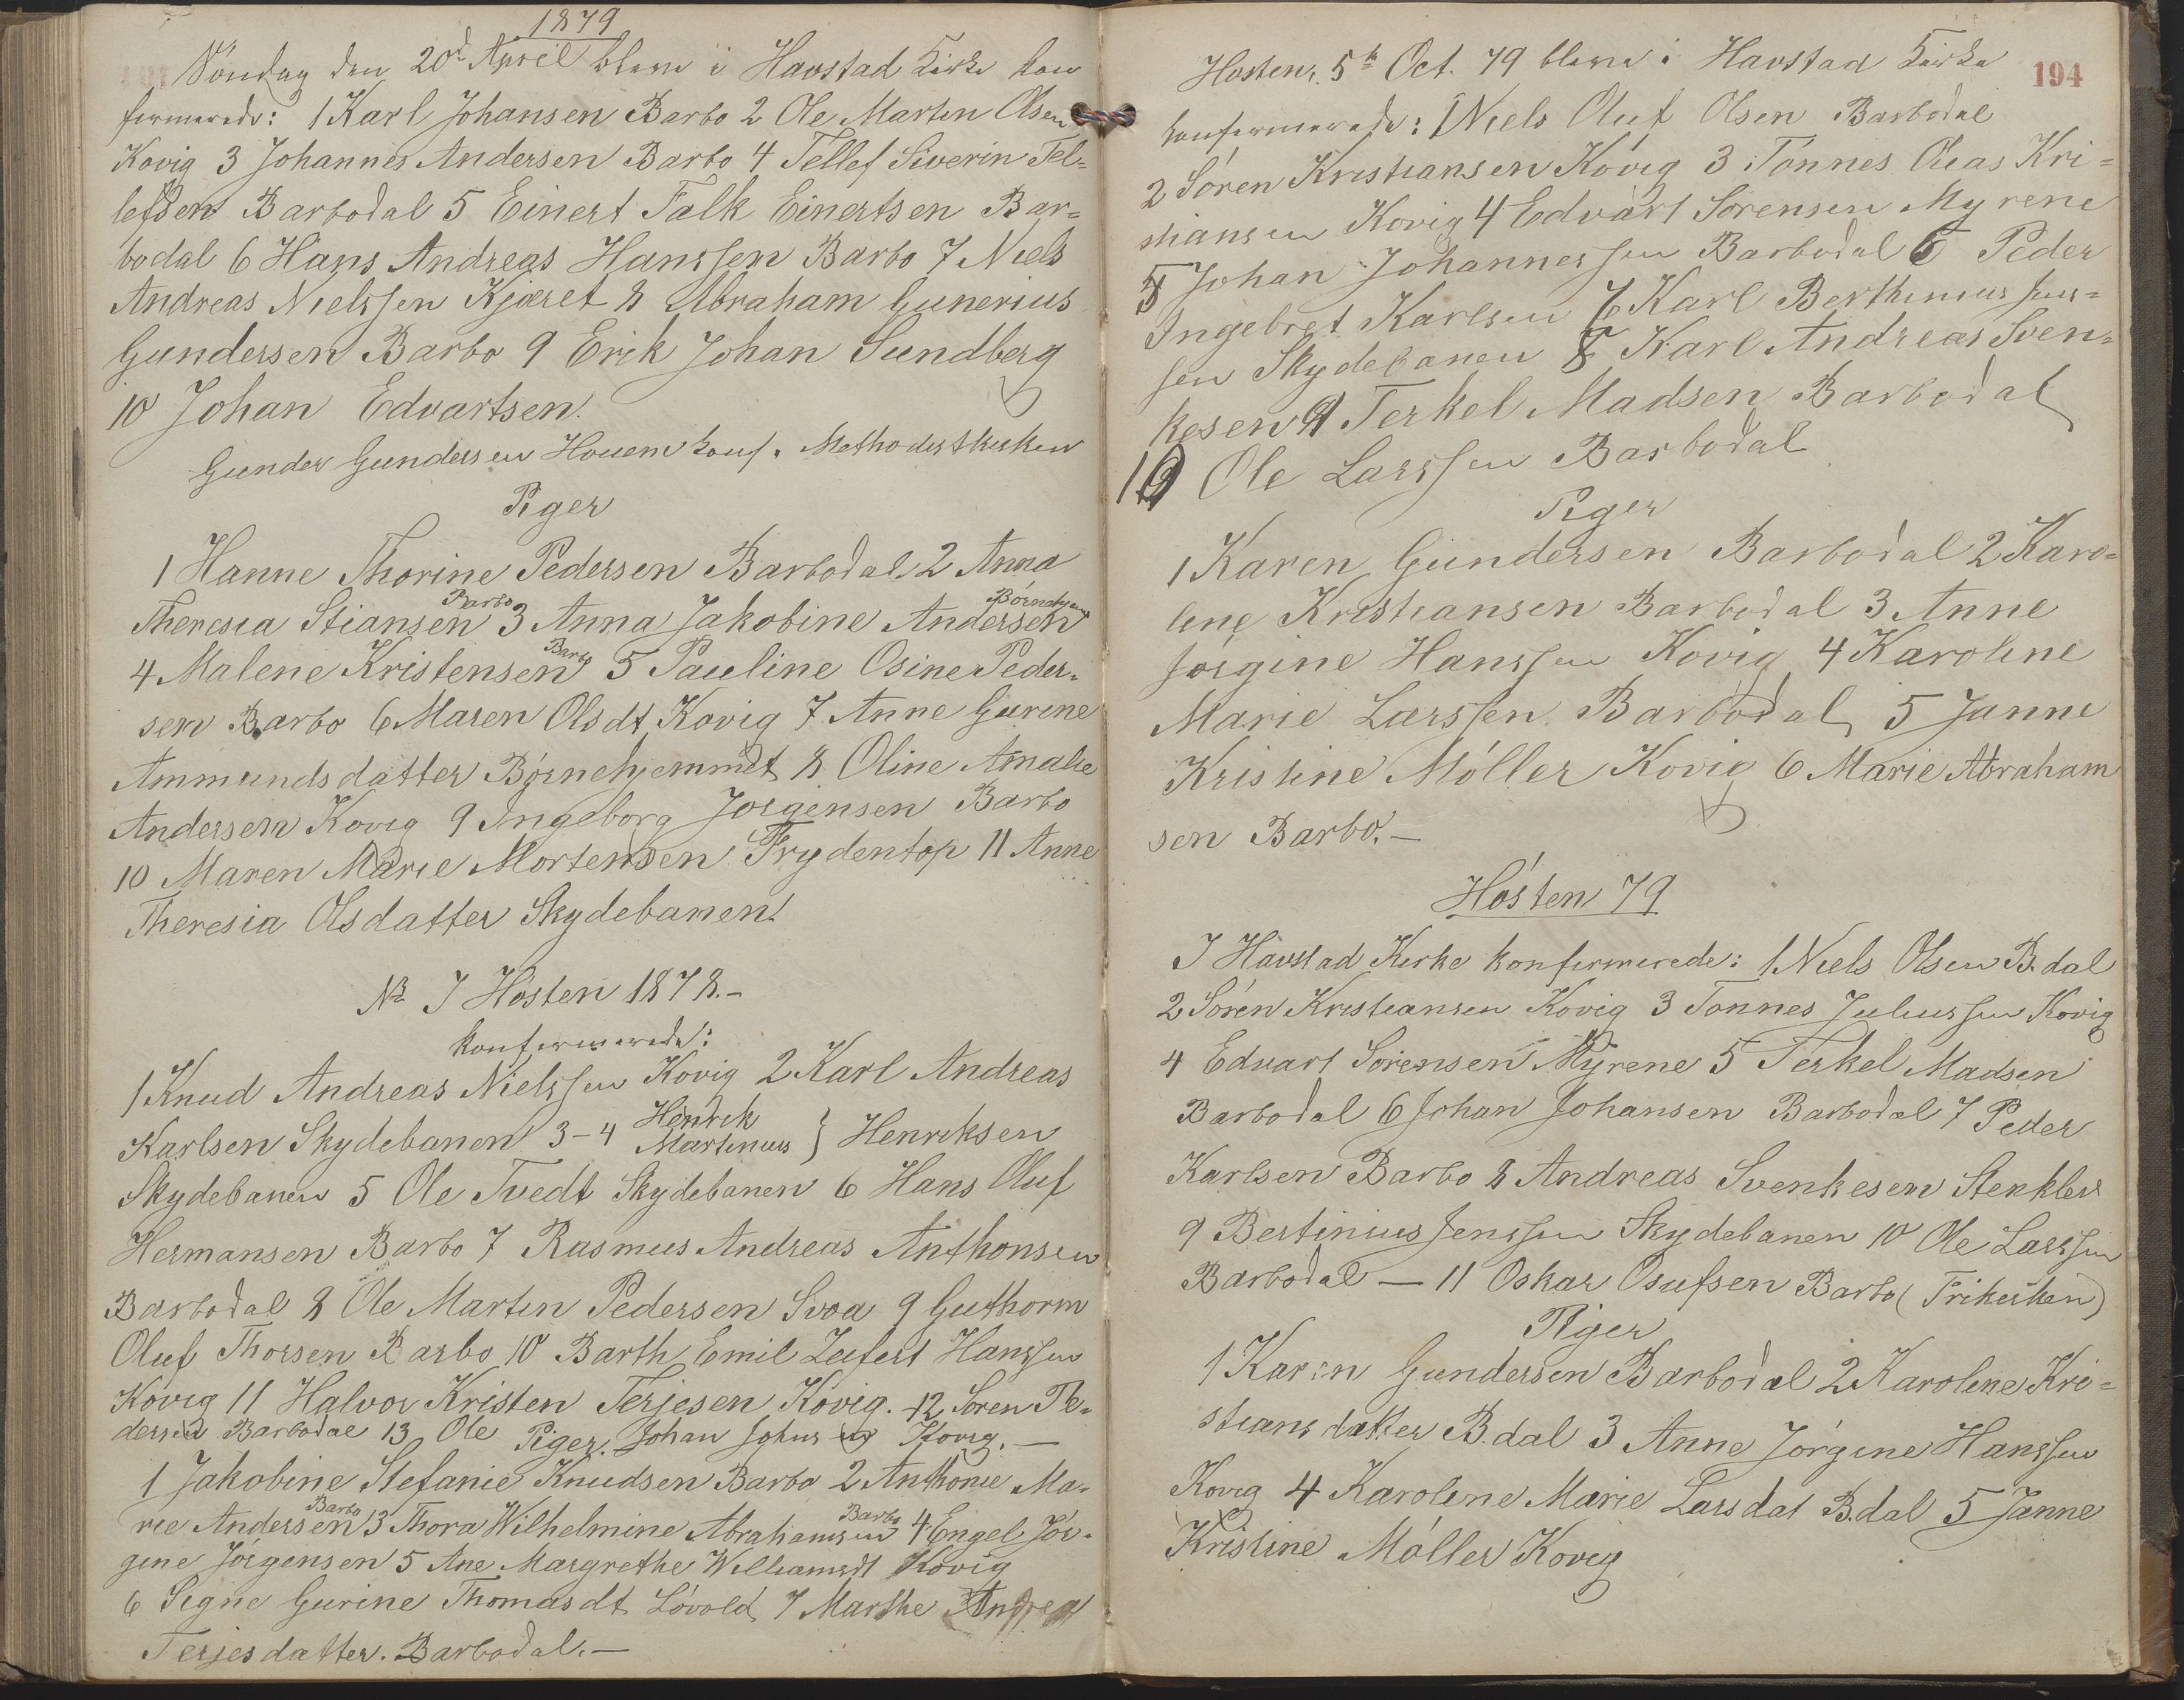 1879
Söndag den 20d April bleve i Havstad Kirke kon
firmerede: 1 Karl Johansen Barbo 2 Ole Martin Olsen
Kovig 3 Johannes Andersen Barbo 4 Tellef Siverin Tel=
lefsen Barbodal 5 Einert Falk Einertsen Bar=
bodal 6 Hans Andreas Hanssen Barbo 7 Niels
Andreas Nielssen Kjæret 8 Abraham Gunerius
Gundersen Barbo 9 Erik Johan Sundberg
10 Johan Edvartsen.
Gunder Gundersen Houem konf. Methodistkirken
Piger
1 Hanne Thorine Pedersen Barbodal 2 Anna
Theresia Stiansen Barbo 3 Anna Jakobine Andersen Börnehjem
4 Malene Kristensen Barbo 5 Pauline Osine Peder=
sen Barbo 6 Maren Olsdt Kovig 7 Anne Gurine
Ammundsdatter Börnehjemmet 8 Oline Amalie
Andersen Kovig 9 Ingeborg Jorgensen Barbo
10 Maren Marie Mortensen Frydentop 11 Anne
Theresia Olsdatter Skydebanen.
NB I Hösten 1878.-
konfirmerede:
1 Knud Andreas Nielssen Kovig 2 Karl Andreas
Karlsen Skydebanen 3-4 Henrik Martinius } Henriksen
Skydebanen 5 Ole Tvedt Skydebanen 6 Hans Oluf
Hermansen Barbo 7 Rasmus Andreas Anthonsen
Barbodal 8 Ole Martin Pedersen Svoa 9 Guthorm
Oluf Thorsen Barbo 10 Barth Emil Zeifert Hanssen
Kovig 11 Halvor Kristen Terjesen Kövig. 12 Soren Pe=
dersen Barbodal 13 Ole Johan Johnsen Kovig.—
Piger.
1 Jakobine Stefanie Knudsen Barbo 2 Anthonie Ma=
rie Andersen Barbo 3 Thora Wilhelmine Abrahamsen Barbo 4 Engel Jör=
gine Jörgensen 5 Ane Margrethe Williamsdt Kovig
6 Signe Gurine Thomasdt Lövold 7 Marthe Andrea
Terjesdatter. Barbodal.—
194
Hosten, 5te Oct. 79 bleve i Havstad Kirke
konfirmerede: 1 Niels Oluf Olsen Barbodal
2 Sören Kristiansen Kóvig 3 Tonnes Oleas Kri=
stiansen Kovig 4 Edvart Sörensen Myrene
5 Johan Johannessen Barbodal 6 Peder
Ingebret Karlsen 7 Karl Berthinius Jens=
sen Skydebanen 8 Karl Andreas Sven=
kesen 9 Terkel Madsen Barbodal
10 Ole Larssen Barbodal
Piger
1 Karen Gundersen Barbodal 2 Karo=
line Kristiansen Barbodal 3 Anne
Jorgine Hanssen Kovig 4 Karoline
Marie Larssen Barbodal 5 Janne
Kristine Möller Kovig 6 Marie Abraham
sen Barbo.—
Hösten 79
I Havstad Kirke konfirmerede: 1 Niels Olsen B.dal
2 Sören Kristiansen Kovig 3 Tonnes Juliussen Kovig
4 Edvart Sörensen Myrene 5 Terkel Madsen
Barbodal 6 Johan Johansen Barbodal 7 Peder
Karlsen Barbo 8 Andreas Svenkesen Stenklev
9 Bertinius Jenssen Skydebanen 10 Ole Larssen
Barbodal — 11 Oskar Osufsen Barbo (Frikirken)
Piger
1 Karen Gundersen Barbodal 2 Karoline Kri=
stiansdatter B.dal 3 Anne Jörgine Hanssen
Kovig 4 Karoline Marie Larsdat B.dal 5 Janne
Kristine Möller Kovig